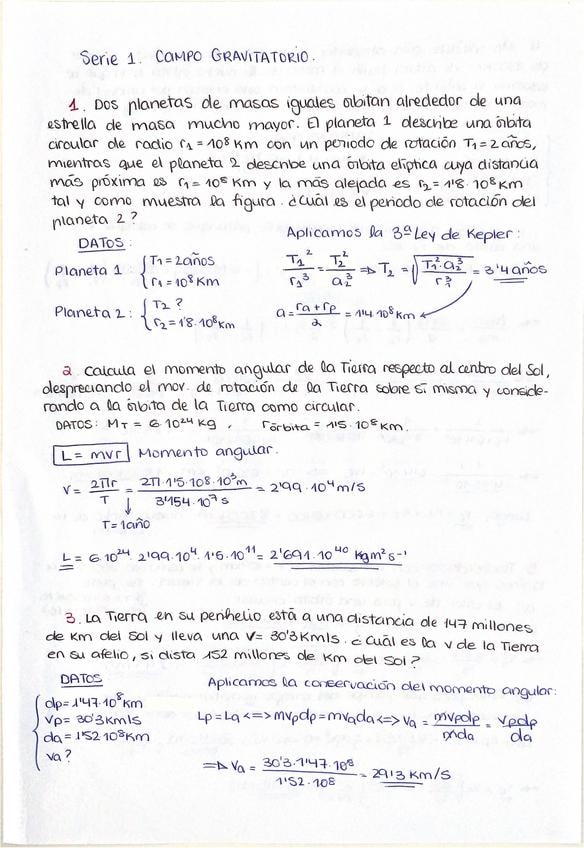 Serie 1. CAMPO GRAVITATORIO.
1. Dos planetas de masas iguales orbitan alrededor de una
estrella de masa mucho mayor. El planeta 1 describe una órbita
circular de radio r₁ = 10⁸ Km con un periodo de rotación T₁ = 2 años,
mientras que el planeta 2 describe una órbita elíptica cuya distancia
más próxima es r₁ = 10⁸ Km y la más alejada es r₂ = 1'8·10⁸ Km
tal y como muestra la figura. ¿Cuál es el periodo de rotación del
planeta 2?
DATOS:
Planeta 1 { T₁ = 2 años
r₁ = 10⁸ Km
Planeta 2: { T₂ ?
r₂ = 1'8·10⁸ Km
Aplicamos la 3ª Ley de Kepler:
T₁²/r₁³ = T₂²/a₂³ ⇒ T₂ = √(T₁²·a₂³/r₁³) = 3'4 años
a = (ra+rp)/2 = 1'4·10⁸ Km
2. Calcula el momento angular de la Tierra respecto al centro del Sol,
despreciando el mov. de rotación de la Tierra sobre sí misma y conside-
rando a la órbita de la Tierra como circular.
DATOS: M_T = 6·10²⁴ Kg, r órbita = 1'5·10⁸ Km.
L = mvr Momento angular.
V = 2πr/T = 2π·1'5·10⁸·10³m/3'154·10⁷s = 2'99·10⁴ m/s
T = 1 año
L = 6·10²⁴·2'99·10⁴·1'5·10¹¹ = 2'691·10⁴⁰ Kg m² s⁻¹
3. La Tierra en su perihelio está a una distancia de 147 millones
de Km del Sol y lleva una V = 30'3 Km/s. ¿Cuál es la v de la Tierra
en su afelio, si dista 152 millones de Km del Sol?
DATOS:
{ dp = 1'47·10⁸ Km
vp = 30'3 Km/s
da = 1'52·10⁸ Km
va?
Aplicamos la conservación del momento angular:
Lp = La <=> mvpdp = mvada <=> va = mvpdp/mda = vpdp/da
⇒ va = 30'3·1'47·10⁸/1'52·10⁸ = 29'3 Km/s